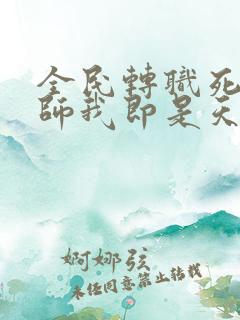 全民轉職死
師我即是天
婀娜弦
未經同意禁止轉載